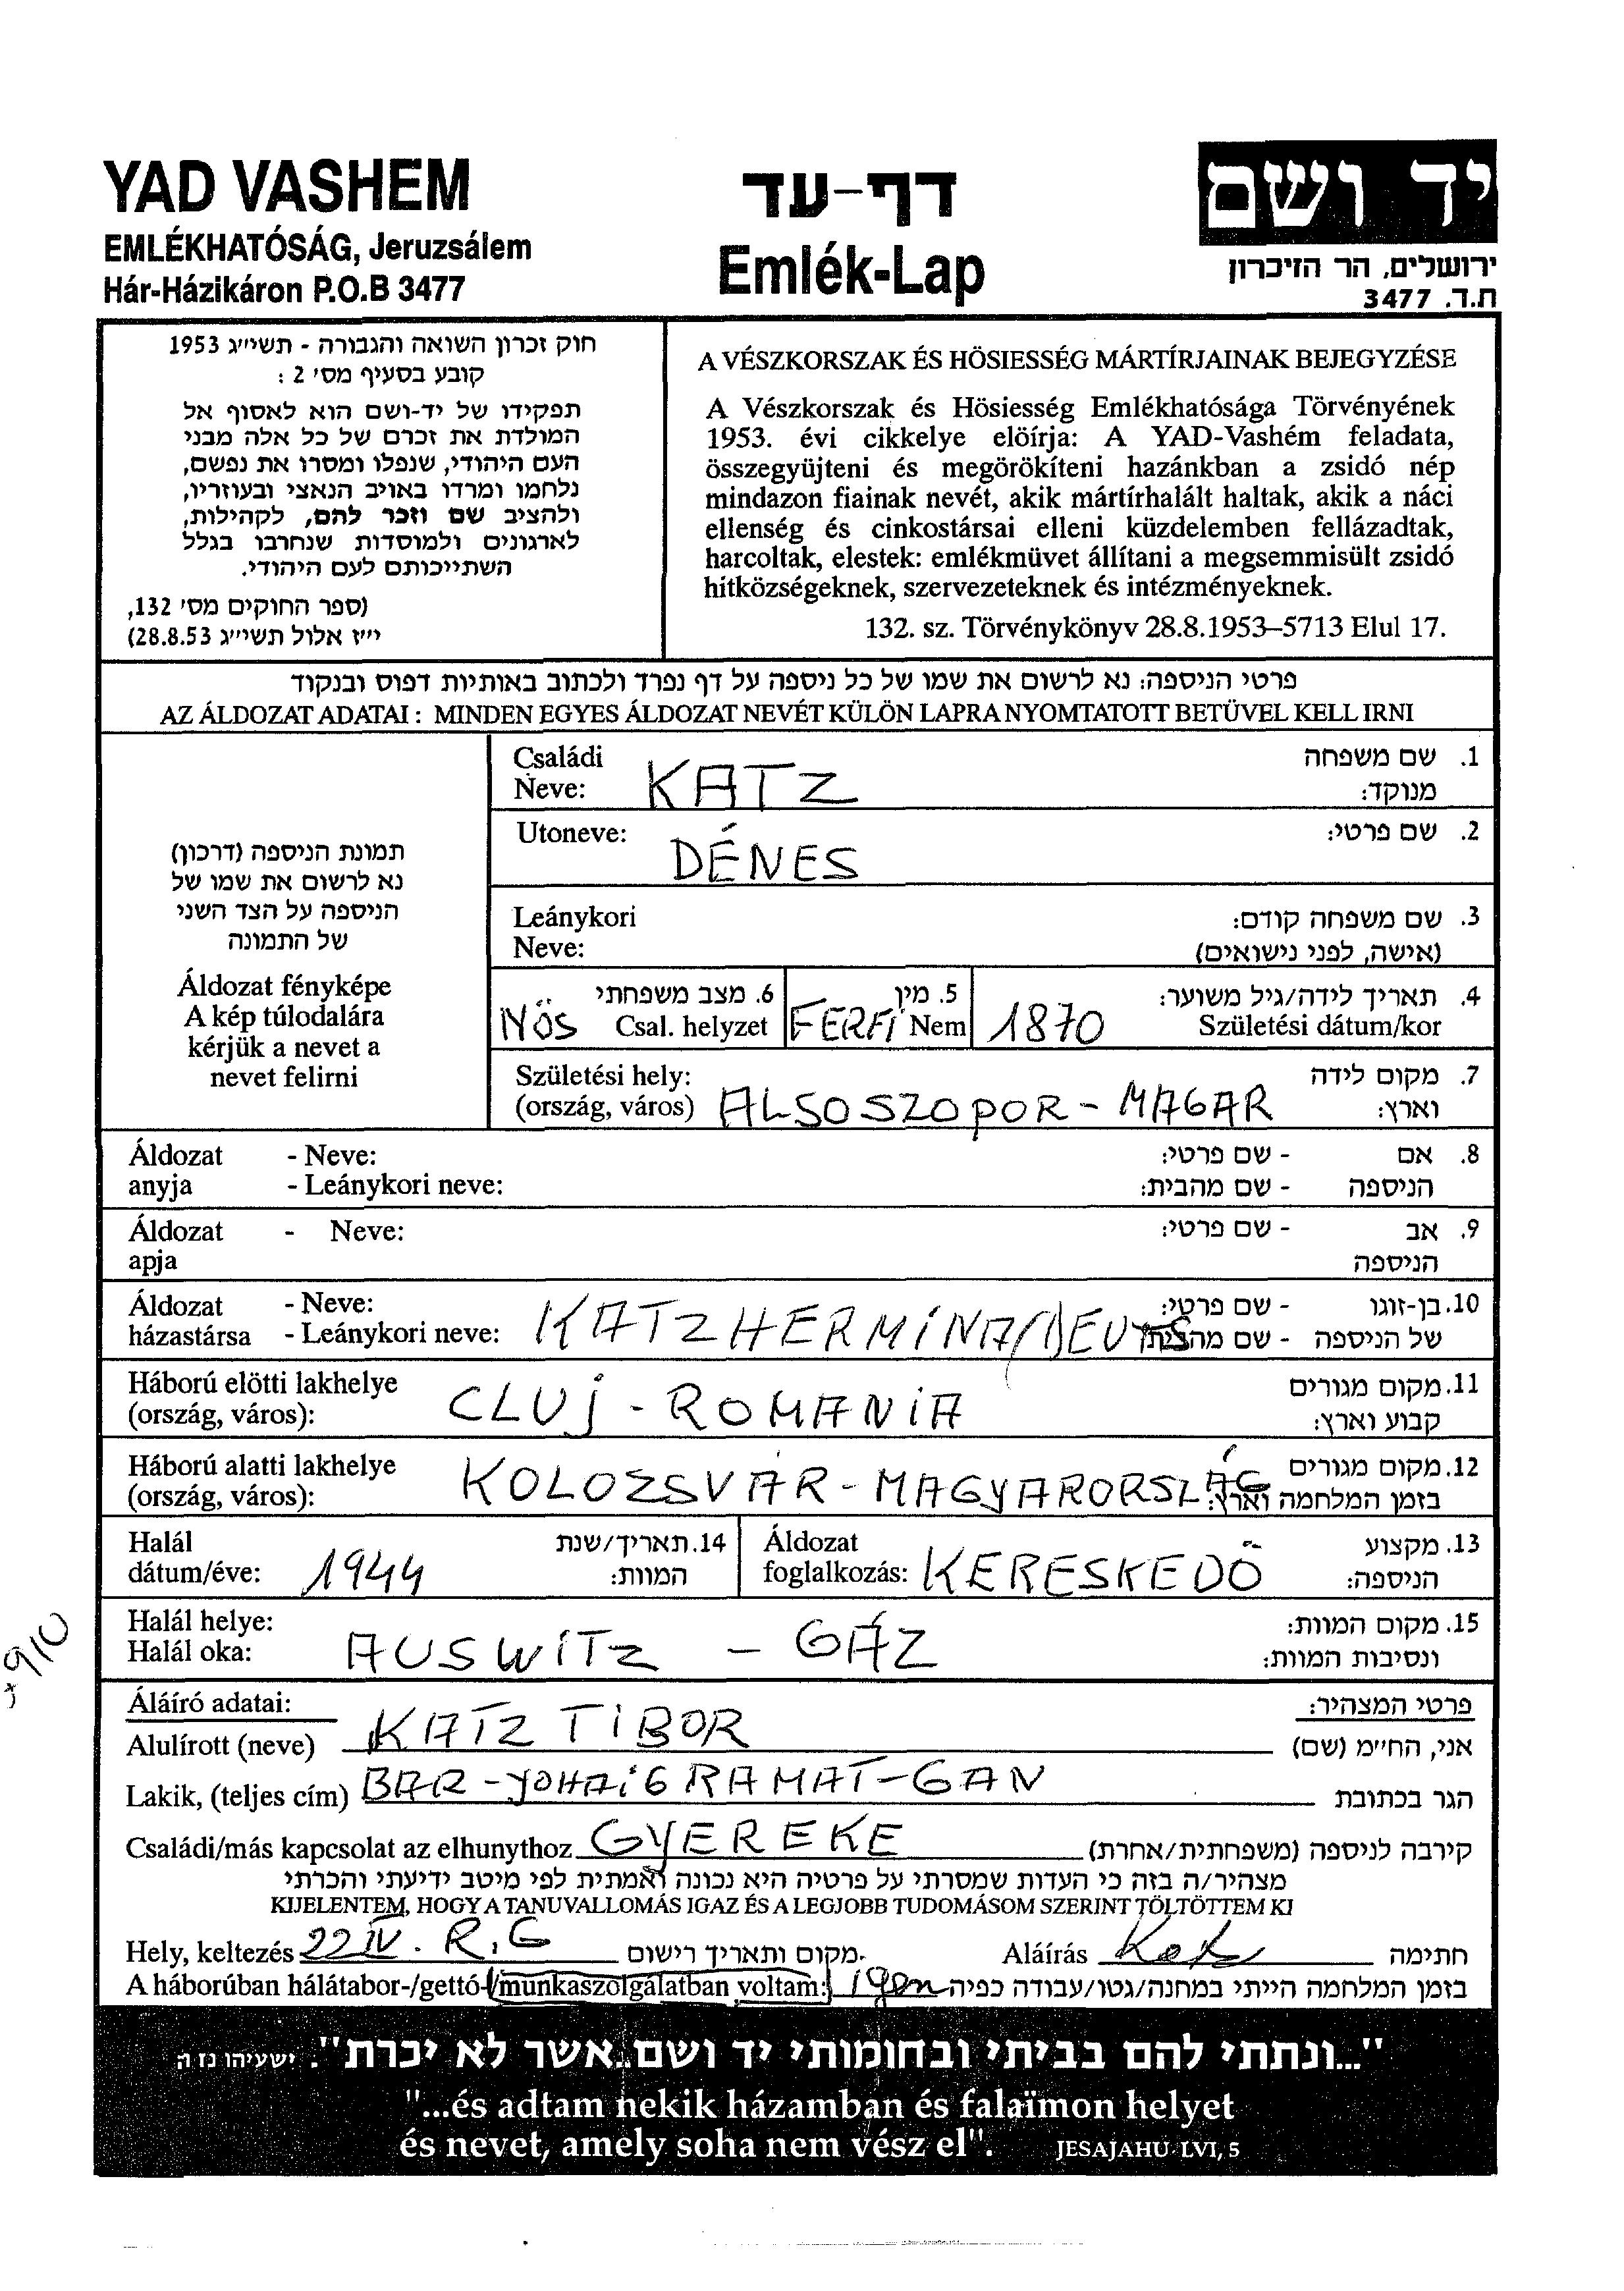 YAD VASHEM
EMLÉKHATÓSÁG, Jeruzsálem
Hár-Házikáron P.O.B 3477
דף-עד
Emlék-Lap
יד ושם
ירושלים, הר הזיכרון
ת.ד. 3477
חוק זכרון השואה והגבורה - תשי״ג 1953
קובע בסעיף מס׳ 2 :
תפקידו של יד-ושם הוא לאסוף אל
המולדת את זכרם של כל אלה מבני
העם היהודי, שנפלו ומסרו את נפשם,
נלחמו ומרדו באויב הנאצי ובעוזריו,
ולהציב שם וזכר להם, לקהילות,
לארגונים ולמוסדות שנחרבו בגלל
השתייכותם לעם היהודי.
(ספר החוקים מס׳ 132,
י״ז אלול תשי״ג 28.8.53)
A VÉSZKORSZAK ÉS HÖSIESSÉG MÁRTÍRJAINAK BEJEGYZÉSE
A Vészkorszak és Hösiesség Emlékhatósága Törvényének
1953. évi cikkelye elöírja: A YAD-Vashém feladata,
összegyüjteni és megörökíteni hazánkban a zsidó nép
mindazon fiainak nevét, akik mártírhalált haltak, akik a náci
ellenség és cinkostársai elleni küzdelemben fellázadtak,
harcoltak, elestek: emlékmüvet állítani a megsemmisült zsidó
hitközségeknek, szervezeteknek és intézményeknek.
132. sz. Törvénykönyv 28.8.1953–5713 Elul 17.
פרטי הניספה: נא לרשום את שמו של כל ניספה על דף נפרד ולכתוב באותיות דפוס ובנקוד
AZ ÁLDOZAT ADATAI : MINDEN EGYES ÁLDOZAT NEVÉT KÜLÖN LAPRA NYOMTATOTT BETÜVEL KELL IRNI
תמונת הניספה (דרכון)
נא לרשום את שמו של
הניספה על הצד השני
של התמונה
Áldozat fényképe
A kép túlodalára
kérjük a nevet a
nevet felirni
Családi Neve: KATZ 1. שם משפחה מנוקד:
Utoneve: DÉNES 2. שם פרטי:
Leánykori Neve: 3. שם משפחה קודם: (אישה, לפני נישואים)
NÖS 6. מצב משפחתי Csal. helyzet FERFI 5. מין Nem 1870 4. תאריך לידה/גיל משוער: Születési dátum/kor
Születési hely: (ország, város) ALSOSZOPOR - MAGAR 7. מקום לידה וארץ:
Áldozat anyja - Neve: - Leánykori neve: 8. אם הניספה - שם פרטי: - שם מהבית:
Áldozat apja - Neve: 9. אב הניספה - שם פרטי:
Áldozat házastársa - Neve: - Leánykori neve: KATZ HERMINA 10. בן-זוגו של הניספה - שם פרטי: - שם מהבית:
Háború elötti lakhelye (ország, város): CLUJ - ROMANIA 11. מקום מגורים קבוע וארץ:
Háború alatti lakhelye (ország, város): KOLOZSVÁR - MAGYARORSZÁG 12. מקום מגורים בזמן המלחמה וארץ:
Halál dátum/éve: 1944 14. תאריך/שנת המוות: Áldozat foglalkozás: KERESKEDÖ 13. מקצוע הניספה:
Halál helye: Halál oka: AUSWITZ - GÁZ 15. מקום המוות: ונסיבות המוות:
Áláíró adatai: פרטי המצהיר:
Alulírott (neve) KATZ TIBOR אני, החי״מ (שם)
Lakik, (teljes cím) BAR-YOHAI 6 RAMAT-GAN הגר בכתובת
Családi/más kapcsolat az elhunythoz GYEREKE קירבה לניספה (משפחתית/אחרת)
מצהיר/ה בזה כי העדות שמסרתי על פרטיה היא נכונה ואמתית לפי מיטב ידיעתי והכרתי
KIJELENTEM, HOGY A TANUVALLOMÁS IGAZ ÉS A LEGJOBB TUDOMÁSOM SZERINT TÖLTÖTTEM KI
Hely, keltezés 22 IV. R.G מקום ותאריך רישום Aláírás Katz חתימה
A háborúban hálátabor-/gettó-/munkaszolgálatban voltam: igen בזמן המלחמה הייתי במחנה/גטו/עבודה כפיה
"...ונתתי להם בביתי ובחומותי יד ושם..אשר לא יכרת". ישעיהו נו ה
"...és adtam nekik házamban és falaïmon helyet
és nevet, amely soha nem vész el". JESAJAHU LVI, 5